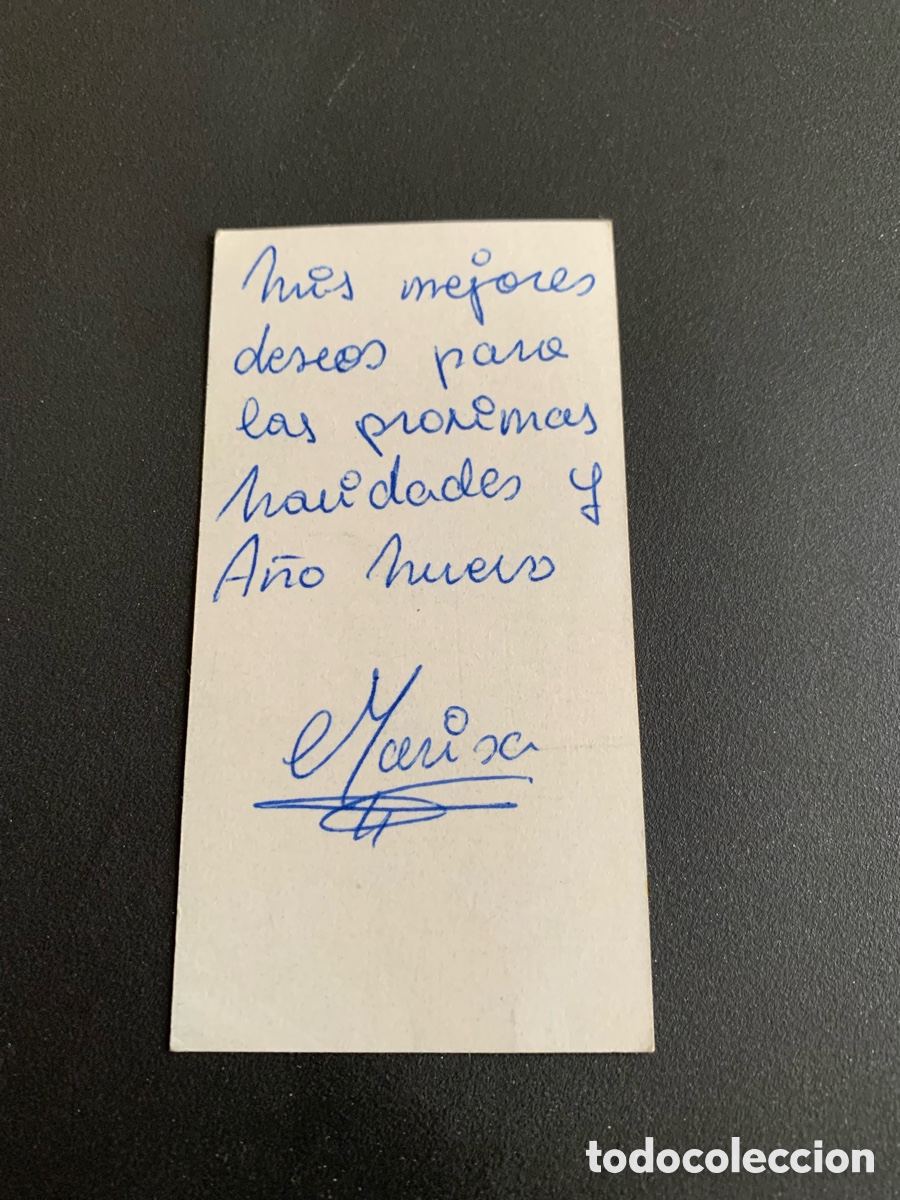 Mis mejores
deseos para
las proximas
Navidades y
Año Nuevo
Marisa
todocoleccion